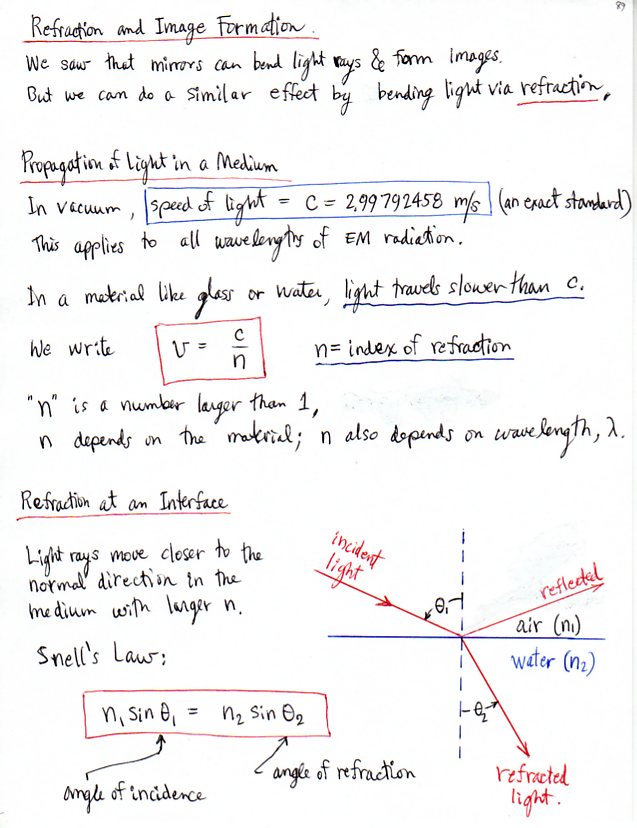 89
Refraction and Image Formation.
We saw that mirrors can bend light rays & form images.
But we can do a similar effect by bending light via refraction.
Propagation of Light in a Medium
In vacuum, speed of light = c = 2.99792458 m/s (an exact standard)
This applies to all wavelengths of EM radiation.
In a material like glass or water, light travels slower than c.
We write v = c/n n = index of refraction
"n" is a number larger than 1,
n depends on the material; n also depends on wavelength, λ.
Refraction at an Interface
Light rays move closer to the
normal direction in the
medium with larger n.
Snell's Law:
n₁ sin θ₁ = n₂ sin θ₂
angle of incidence
angle of refraction
incident
light
θ₁
reflected
air (n₁)
water (n₂)
θ₂
refracted
light.